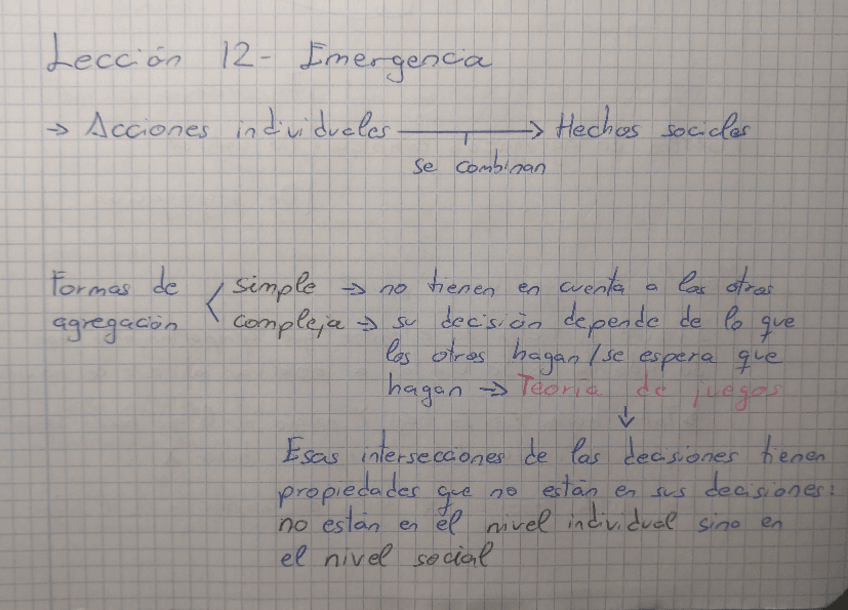 Lección 12- Emergencia
→ Acciones individuales → Hechos sociales
se combinan
Formas de agregación < simple → no tienen en cuenta a los otros
compleja → su decisión depende de lo que
los otros hagan/se espera que
hagan → Teoría de juegos
↓
Esas intersecciones de las decisiones tienen
propiedades que no están en sus decisiones:
no están en el nivel individual sino en
el nivel social